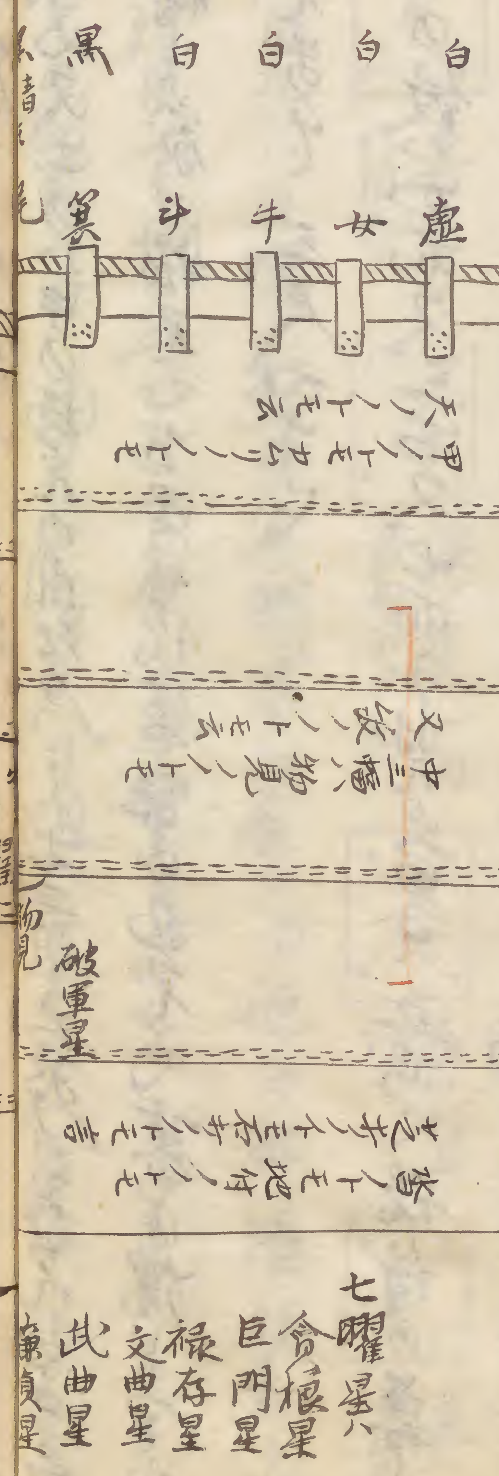 白
白
白
白
黒
虚
女
牛
斗
箕
甲ノノトモカムリノノトモ
天ノノトモ云
中三幅ハ物見ノノトモ
又紋ノノトモ云
物見
破軍星
沓ノノトモ地付ノノトモ
芝打ノノトモ石打ノノトモ言
七曜星ハ
貪狼星
巨門星
禄存星
文曲星
武曲星
廉貞星